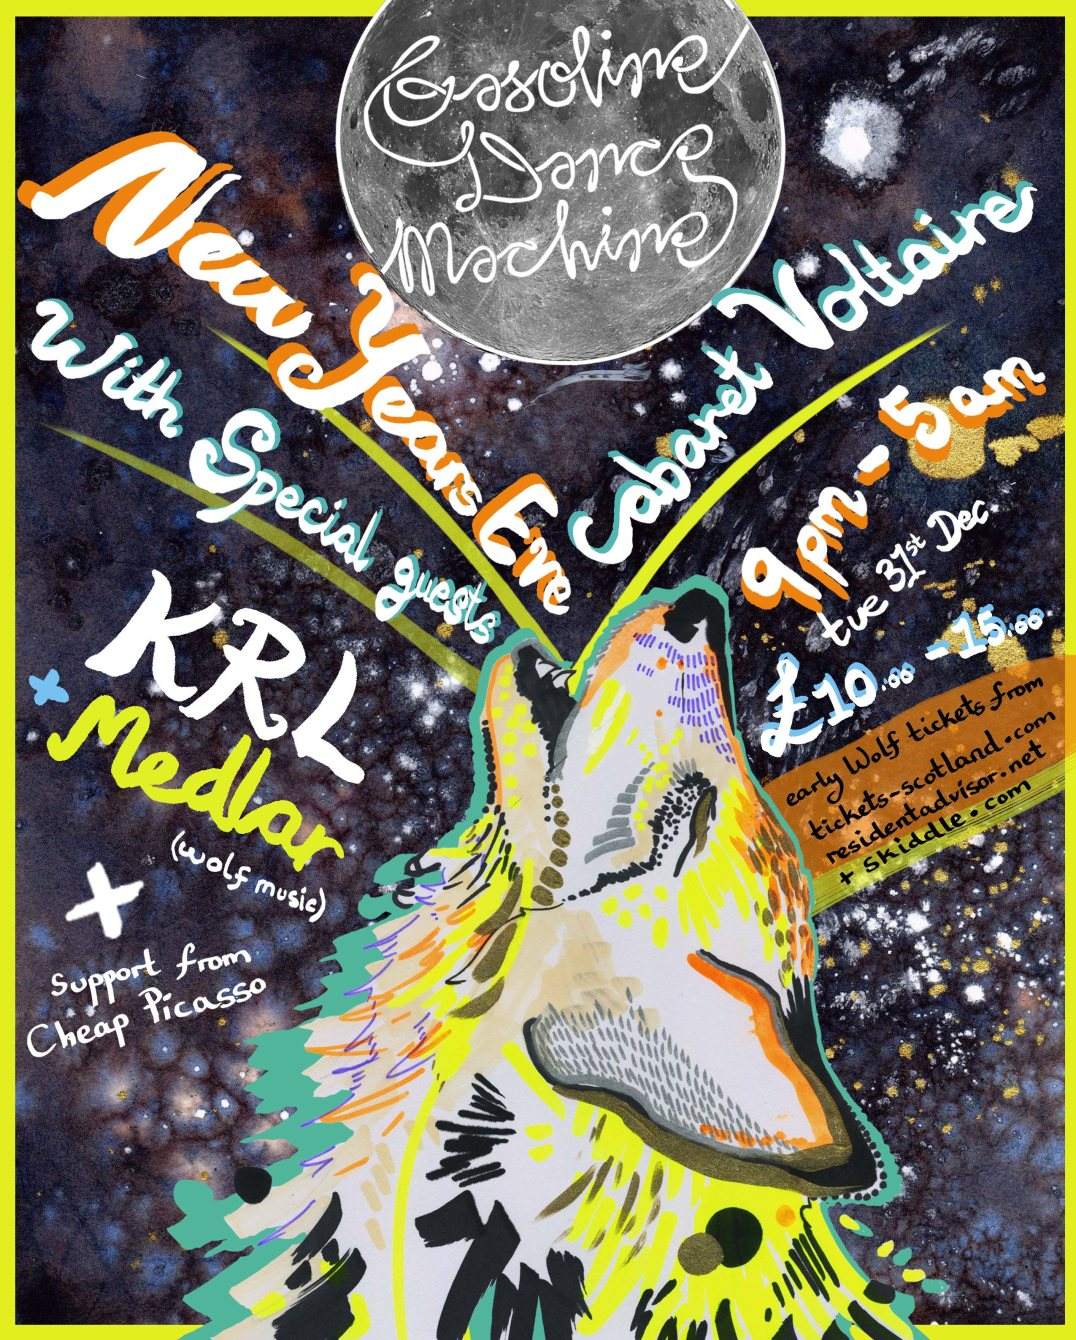 Gasoline
Dance
Machine
New Years Eve
Cabaret Voltaire
With Special guests
9pm - 5am
tue 31st Dec
£10.00 - 15.00
KRL
+ Medlar
(wolf music)
early Wolf tickets from
tickets-scotland.com
residentadvisor.net
+ Skiddle.com
+
Support from
Cheap Picasso